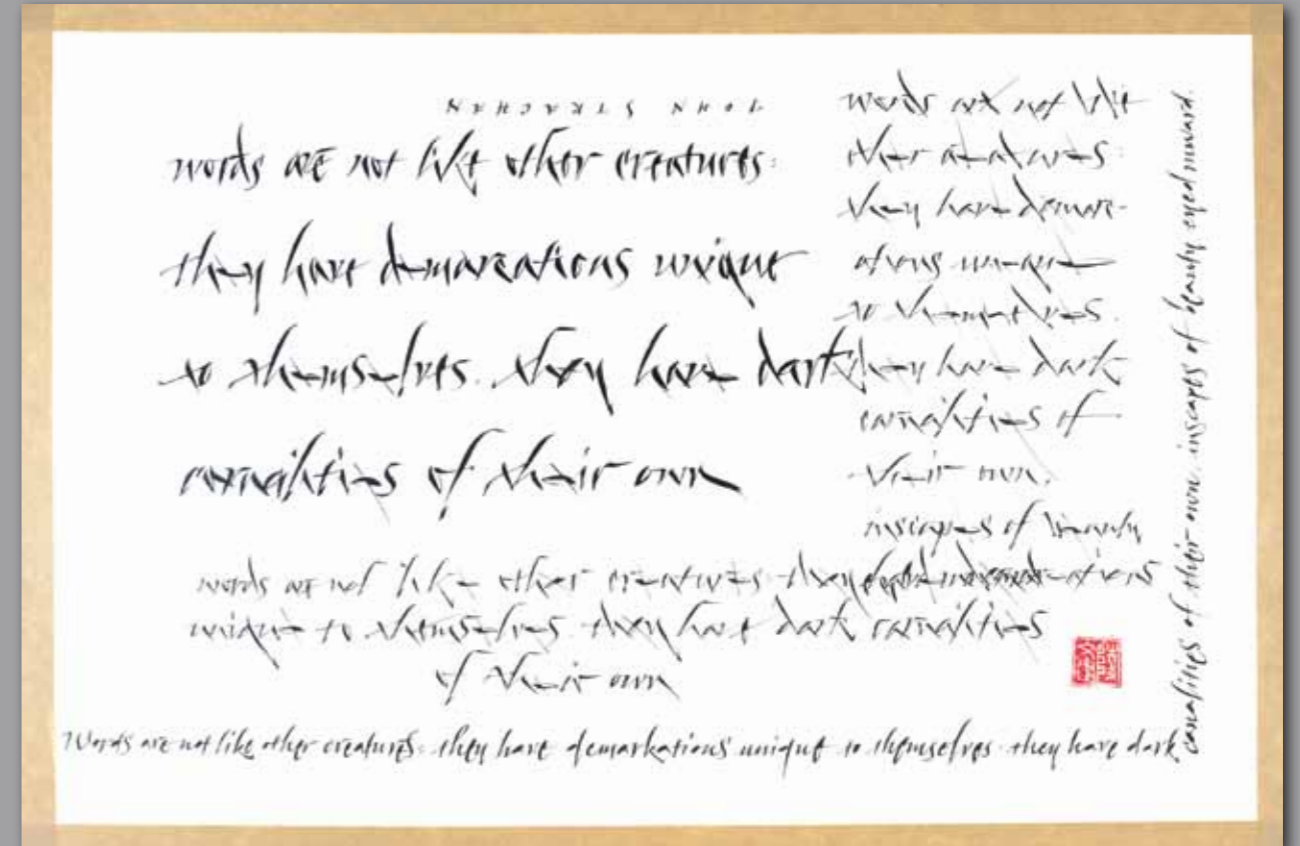 JOHN STRACHAN
words are not like other creatures:
they have demarcations unique
to themselves. they have dark
carnalities of their own
words are not like
other creatures:
they have demarc-
ations unique
to themselves.
they have dark
carnalities of
their own.
inscapes of beauty
words are not like other creatures they
unique to themselves. they have dark carnalities
of their own
Words are not like other creatures: they have demarkations unique to themselves. they have dark
carnalities of their own. inscapes of beauty eyed inward.